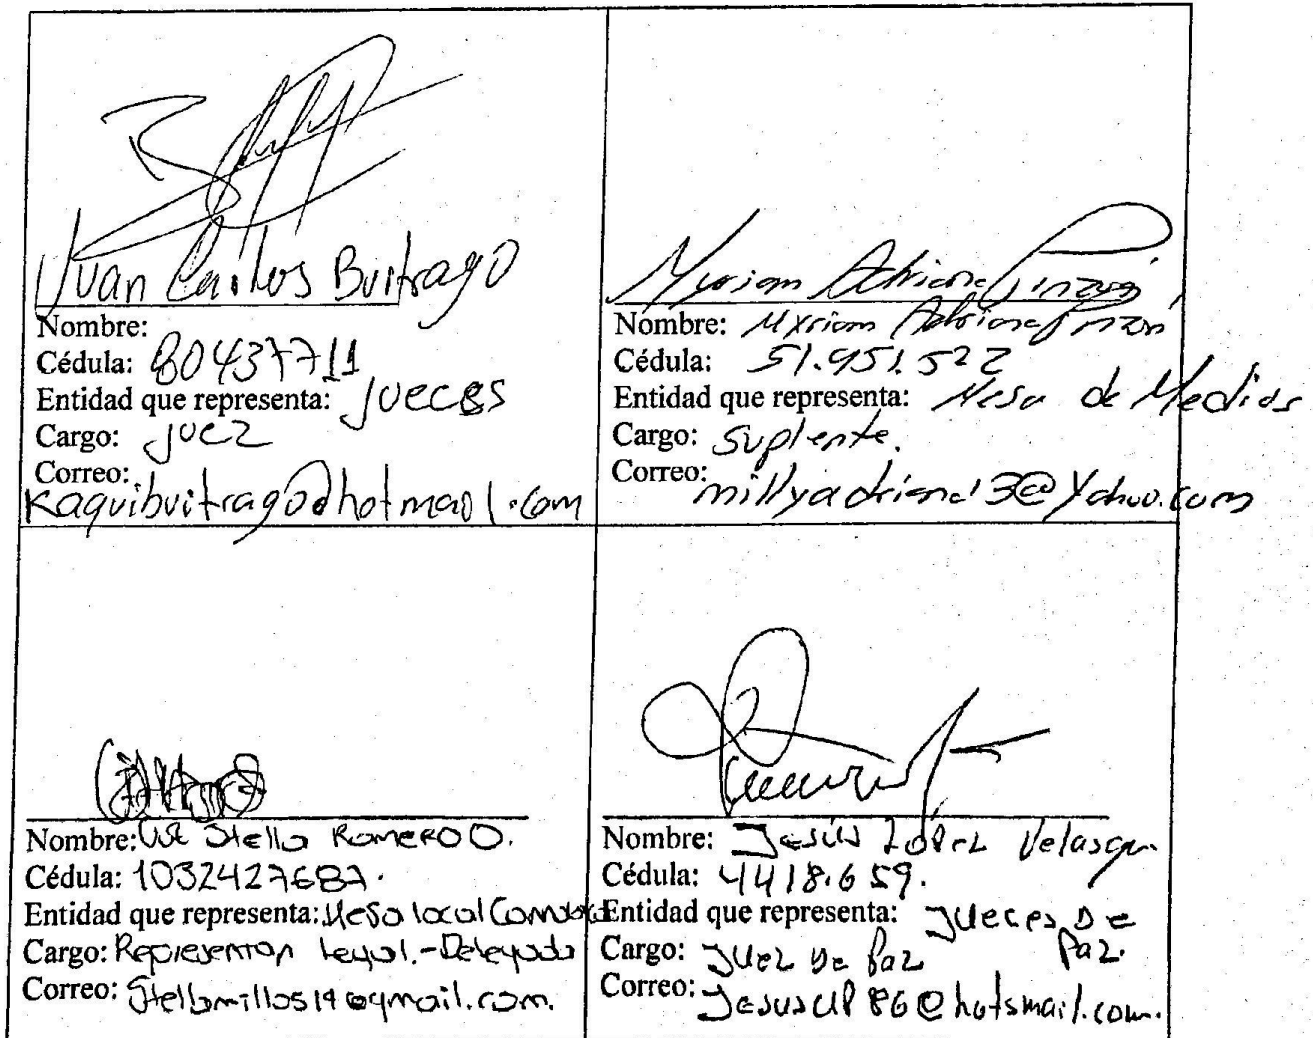 Juan Carlos Buitrago
Nombre:
Cédula: 80437711
Entidad que representa: jueces
Cargo: juez
Correo:
kaquibuitrago@hotmail.com
Myriam Adriana Pinzón
Nombre: Myriam Adriana Pinzón
Cédula: 51.951.522
Entidad que representa: Mesa de Medios
Cargo: Suplente.
Correo:
millyadriana13@yahoo.com
Nombre: Stella Romero O.
Cédula: 1032427687.
Entidad que representa: Mesa local
Cargo: Legal.-Delegada
Correo: Stellamillos14@gmail.com.
Nombre: Jesús López Velasqu.
Cédula: 4418.659.
Entidad que representa: Jueces De
Paz.
Cargo: Juez De Paz
Correo: Jesusul86@hotsmail.com.